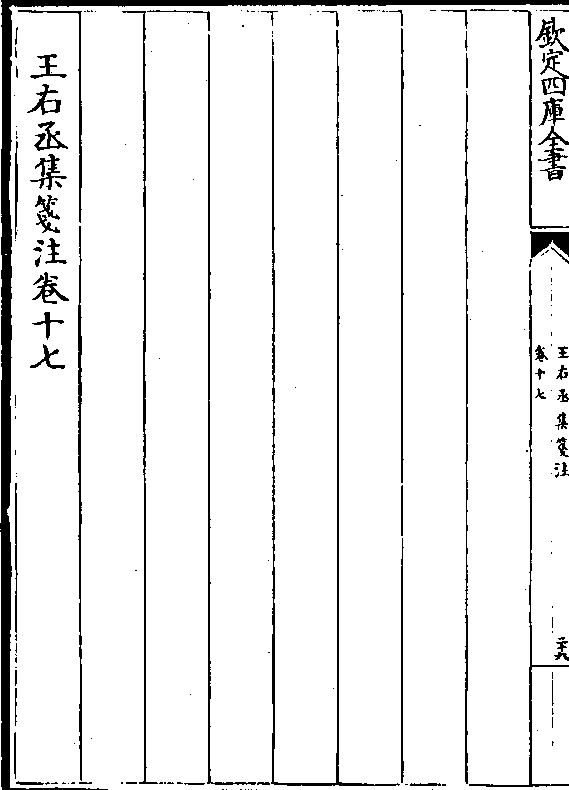 欽定四庫全書
王右丞集箋注
卷十七
王右丞集箋注卷十七